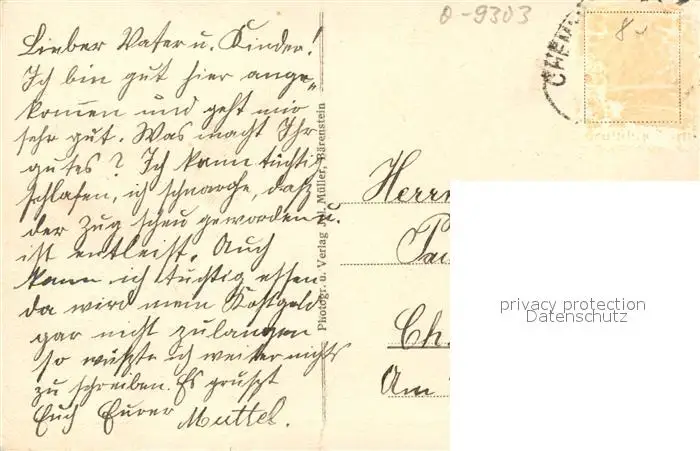 O-9303
8.-
CHEM
Lieber Vater u. Kinder!
Ich bin gut hier ange„
kommen und geht mir
sehr gut. Was macht Ihr
gutes? Ich kann tüchtig
schlafen, ich schnarche, daß
der Zug scheu geworden u.
ist entleist. Auch
kann ich tüchtig essen
da wird mein Kostgeld
gar nicht zulangen
so wüßte ich weiter nichts
zu schreiben. Es grüßt
Euch Eurer Muttel.
Photogr. u. Verlag J. Müller, Bärenstein
Herrn
Pau
Ch.
Am
privacy protection
Datenschutz